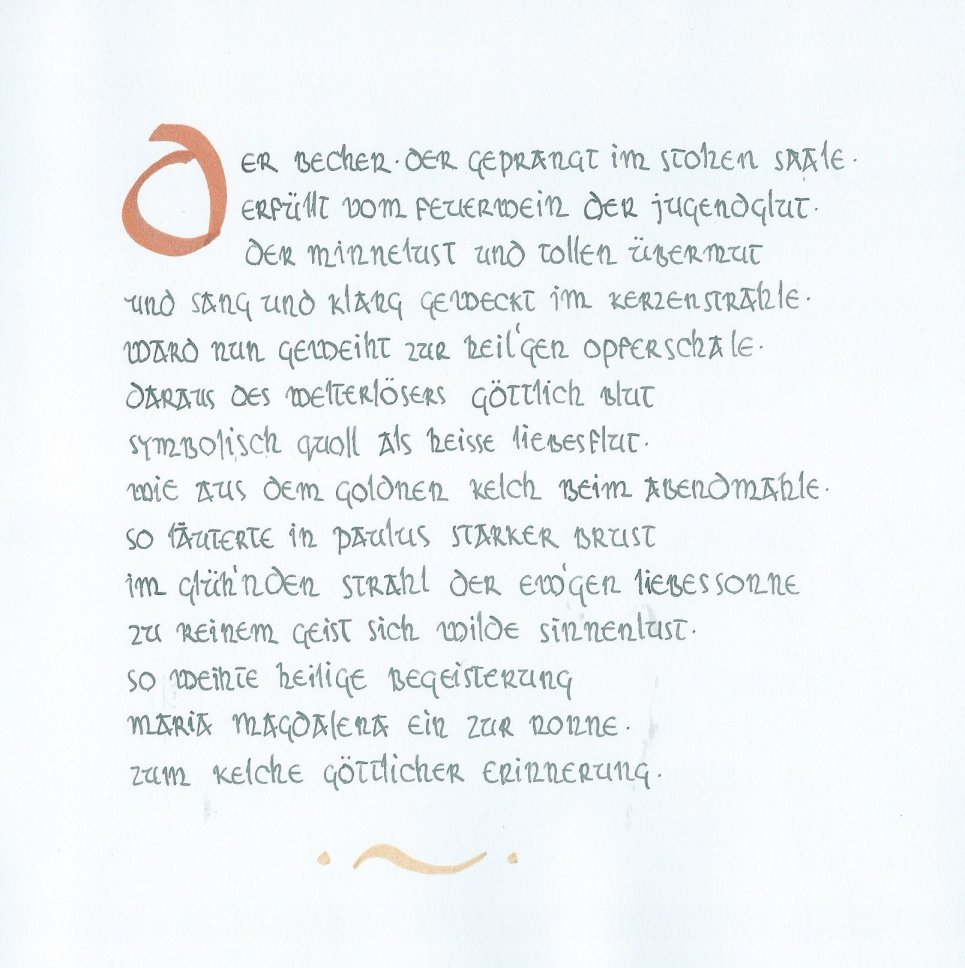 Der Becher. der geprangt im stolzen Saale.
erfüllt vom Feuerwein der Jugendglut.
der Minnelust und tollen Übermut
und Sang und Klang geweckt im Kerzenstrahle.
ward nun geweiht zur heil'gen Opferschale.
daraus des Welterlösers göttlich Blut
symbolisch quoll als heisse Liebesflut.
wie aus dem goldnen Kelch beim Abendmahle.
so läuterte in Paulus starker Brust
im glüh'nden Strahl der ew'gen Liebessonne
zu reinem Geist sich wilde Sinnenlust.
so weihte heilige Begeisterung
Maria Magdalena ein zur Nonne.
zum Kelche göttlicher Erinnerung.